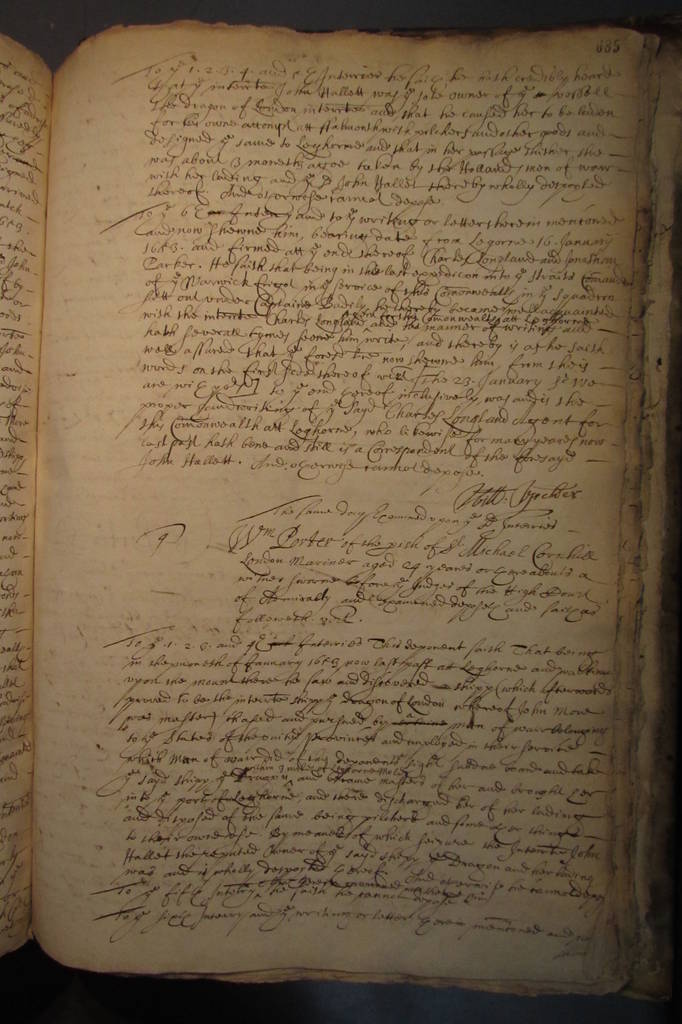 685
To ye 1. 2. 3. 4. and 5 Interries he saith he hath credibly heard
that ye interrte John Hallett was ye sole owner of ye vessell
the dragon of London interrte and that he caused her to be laden
for his owne accompt att ffalmouth with pilchers and other goods and
designed ye same to Leghorne and that in her passage thither she
was about 3 moneths agoe taken by the Hollands men of warr
with her lading and ye sd John Hallet thereby wholly despoyled
thereof. And otherwise cannot depose.
To ye 6th Interry and to ye writing or letter therein mentioned
and now shewne him, bearing date from Legorne 16 January
1653. and firmed att ye end thereof Charles Longland and Jonathan
Parker. He saith that being in the last expedicon into ye Straits Comander
of ye Warwick frigot in ye service of this Comonwealth in ye squadron
sett out under Captaine Badily he thereby became well acquainted
with the interrte Charles Longland Agent for this Comonwealth att Leghorne and
hath severall tymes seene him write, and the manner of writing and
well assured that ye foresd lre now shewne him, from theis
words on the first side thereof vizt The 23. January 53 We
are, to ye end thereof inclusively, was and is the
proper handwriting of ye sayd Charles Longland Agent for
this Comonwealth att Leghorne, who likewise for many yeares now
last past hath bene and still is a Correspondent of the foresayd
John Hallett. And otherwise cannot depose.
The same day Examined upon ye sd Interries
9
Wm Porter of the pish of St Michael Cornhill
London Mariner aged 29 yeares or thereabouts a
witnes sworne before ye Judges of the High Court
of Admiralty and examined deposeth and saith as
followeth vizt.
To ye 1. 2. 3. and 4th Interries This deponent saith That being
in the moneth of January 1653 now last past att Leghorne and walking
upon the mount there he saw and discovered shipp (which afterwards
proved to be the interrte shipp ye dragon of London whereof John More
was master) chased and pursued by a man of warr belonging
to ye States of the united Provinces and employed in their service
which Man of warr did in this deponents sight surprise board and take
ye said shipp ye dragon, and became masters of her and brought her
into ye port of Leghorne, and there discharged her of her lading
and disposed of the same being pilchers and some other things
to their owne use. By meanes of which seizure the Interrte John
Hallet the reputed Owner of ye said shipp ye Dragon and her lading
was and is wholly despoyled thereof. And otherwise he cannot depose
To ye fifth Interry he saith he cannot depose
To ye sixth Interry and ye writing or letter therein mentioned and